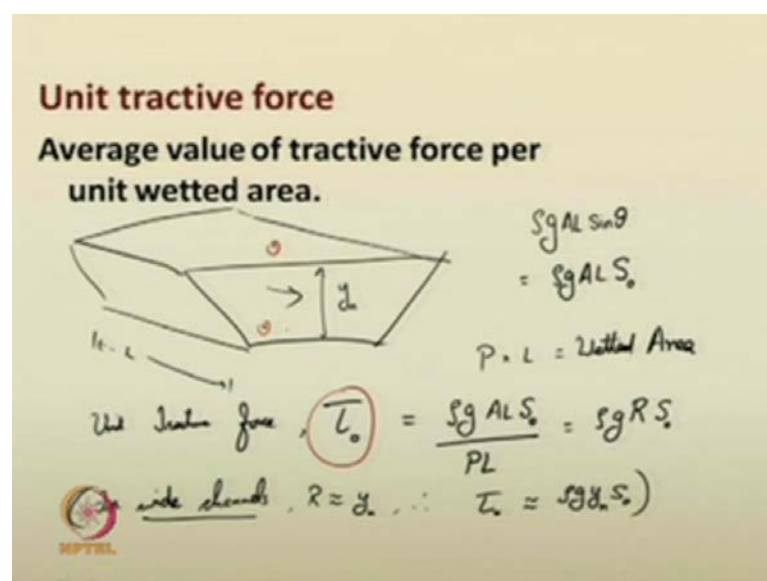 Unit tractive force
Average value of tractive force per
unit wetted area.
ρgAL Sinθ
= ρgAL S₀
yₙ
L
P . L = Wetted Area
Unit Tractive force, τ̄₀ = ρg AL S₀ / PL = ρg R S₀
wide channels, R ≈ yₙ, ∴ τ₀ ≈ ρg yₙ S₀)
NPTEL